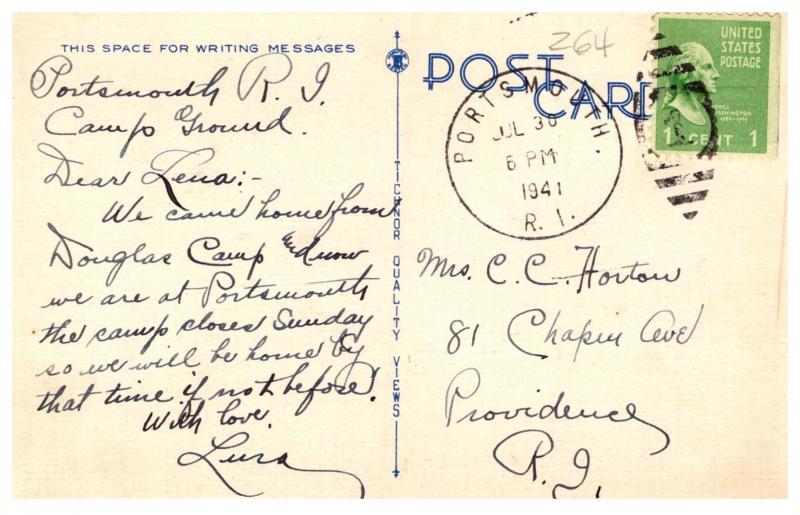 THIS SPACE FOR WRITING MESSAGES
Portsmouth R. I.
Camp Ground.
Dear Lena:-
We came home from
Douglas Camp and now
we are at Portsmouth
the camp closes Sunday
so we will be home by
that time if not before.
With love.
Lura
TICHNOR QUALITY VIEWS
POST CARD
264
PORTSMOUTH.
JUL 30
6 PM
1941
R. I.
UNITED
STATES
POSTAGE
GEORGE
WASHINGTON
1 CENT 1
Mrs. C. C. Horton
81 Chapin Ave
Providence
R. I.